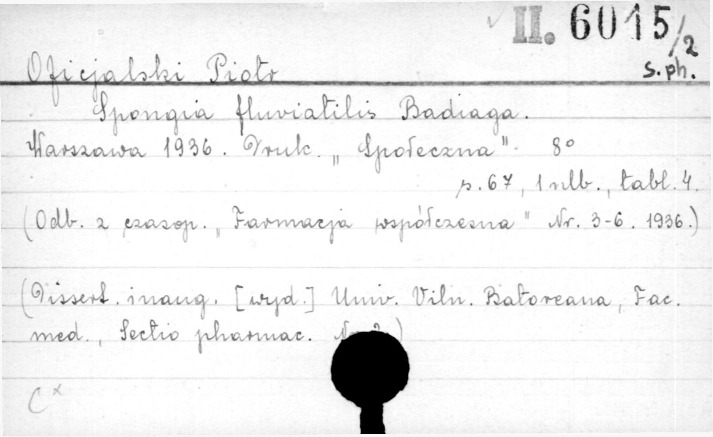 II. 6015/2
s.ph.
Oficjalski Piotr
Spongia fluviatilis Badiaga.
Warszawa 1936. Druk. „Społeczna" 8°
s. 67, 1 nlb., tabl. 4.
(Odb. z czasop. „Farmacja współczesna" Nr. 3-6. 1936.)
(Dissert. inaug. [wyd.] Univ. Viln. Batoreana, Fac.
med., Sectio pharmac. )
C x